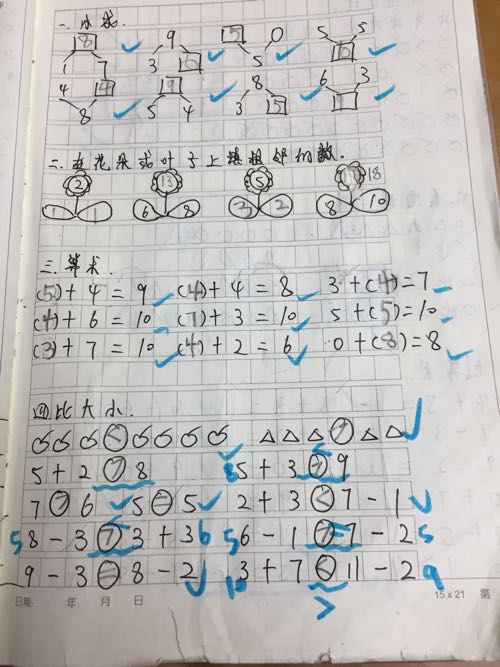 一.
8 9 5 0 5 5
1 7 3 6 5 10
4 4 9 8 6 3
8 5 4 3 5 9
二.在花朵或叶子上填相邻的数.
2 5 18
1 1 6 8 3 2 8 10
三.算术.
(5)+4=9 (4)+4=8 3+(4)=7
(4)+6=10 (7)+3=10 5+(5)=10
(3)+7=10 (4)+2=6 0+(8)=8
四比大小.
<
5+2>8 8 5+3>9
7>6 5=5 2+3<7-1
5 8-3>3+3 6 5 6-1>7-2 5
9-3=8-2 10 3+7<11-2 9
>
日期: 年 月 日 15×21 第